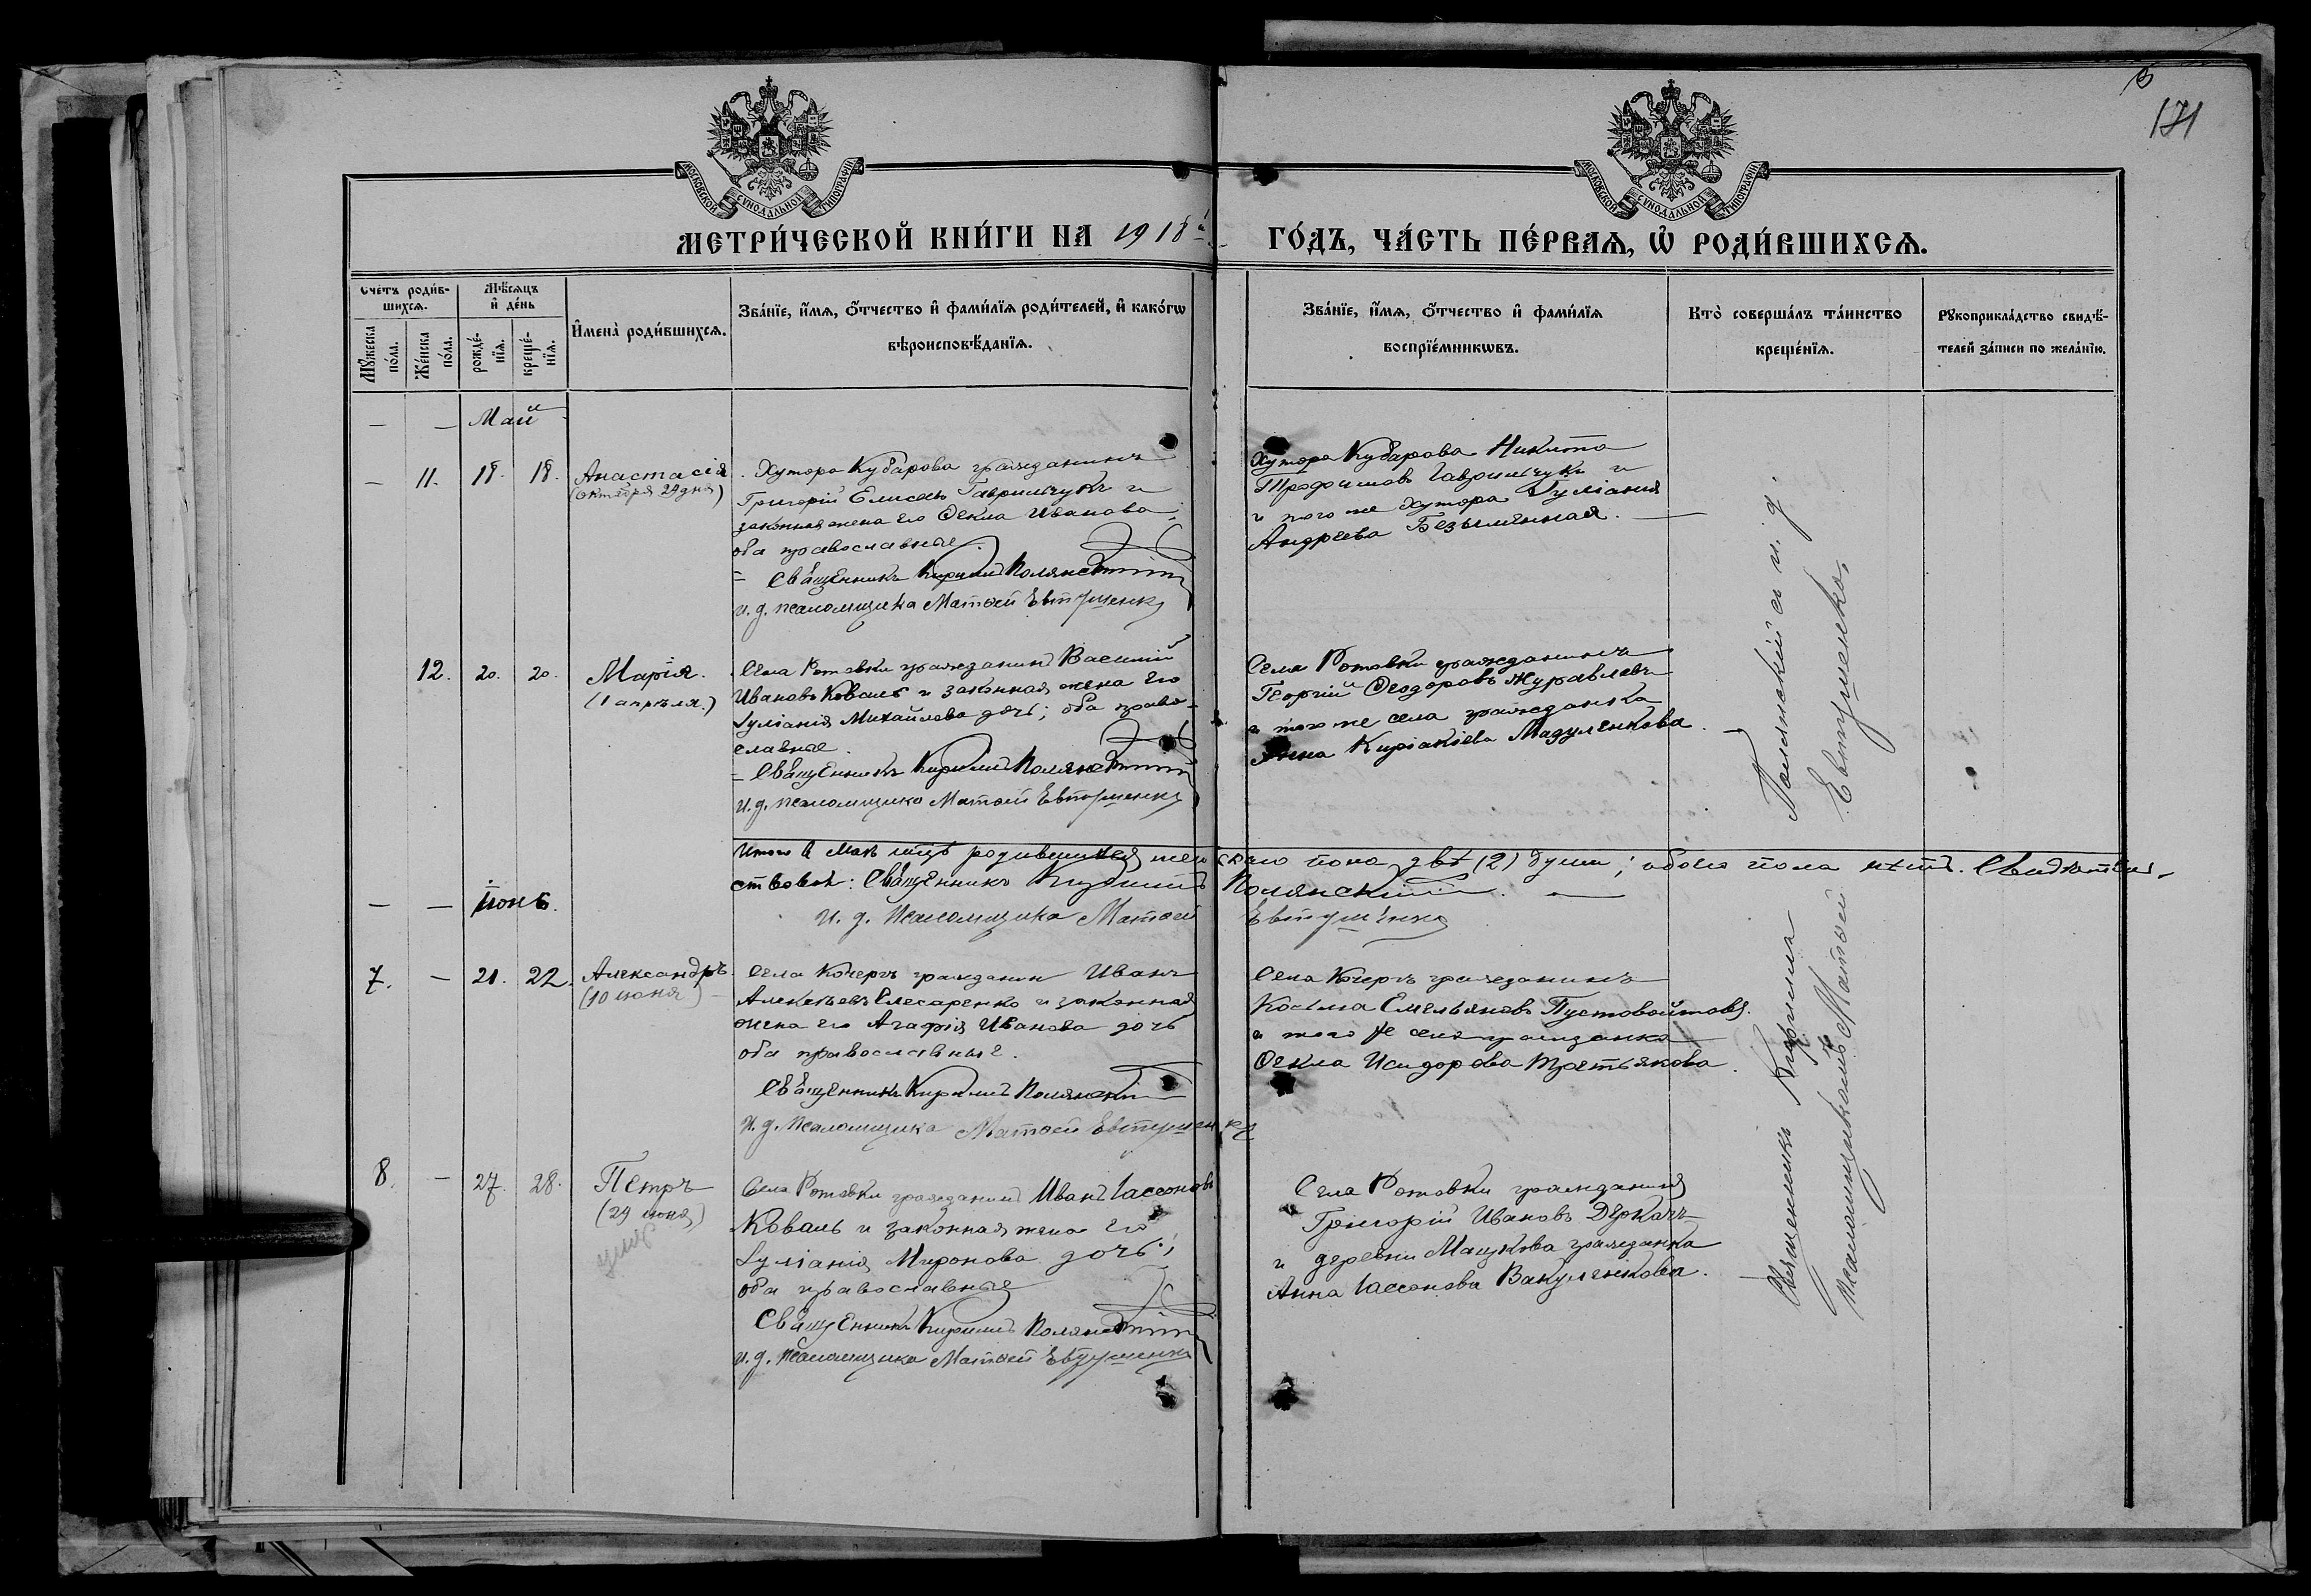 171
МОСКОВСКОЙ СѴНОДАЛЬНОЙ ТИПОГРАФІИ
МОСКОВСКОЙ СѴНОДАЛЬНОЙ ТИПОГРАФІИ
МЕТРИ́ЧЕСКОЙ КНИ́ГИ НА 1918й ГО́ДЪ, ЧА́СТЬ ПЕ́РВАѦ, Ѡ҆ РОДИ́ВШИХСѦ.
Сче́тъ роди́в-
шихсѧ.
Мꙋ́жеска по́ла.
Же́нска по́ла.
Мѣ́сѧцъ и҆ де́нь
рожде́-
нїѧ.
креще́-
нїѧ.
И҆мена̀ роди́вшихсѧ.
Зва́нїе, и҆́мѧ, ѻ҆́тчество и҆ фами́лїѧ роди́телей, и҆ како́гѡ
вѣроисповѣ́данїѧ.
Зва́нїе, и҆́мѧ, ѻ҆́тчество и҆ фами́лїѧ
воспрїе́мникѡвъ.
Кто̀ соверша́лъ та́инство
креще́нїѧ.
Рꙋкоприкла́дство свидѣ́-
телей за́писи по жела́нїю.
— — Май
— 11. 18. 18. Анастасія
(октября 29 дня)
Хутора Кубарова гражданинъ
Григорій Елисеевъ Гаврильчукъ и
законная жена его Ѳекла Иванова;
оба православные.
Священникъ Кириллъ Полянскій
и. д. псаломщика Матѳей Евтушенко
Хутора Кубарова Никита
Трофимовъ Гаврильчукъ и
и того же хутора Іуліанія
Андреева Безыменная.
12. 20. 20. Марія.
(1 апрѣля.)
Села Ротовки гражданинъ Василій
Ивановъ Коваль и законная жена его
Іуліанія Михайлова дочь; оба право-
славные.
Священникъ Кириллъ Полянскій
и. д. псаломщика Матѳей Евтушенко
Села Ротовки гражданинъ
Георгій Ѳеодоровъ Журавлевъ
и того же села гражданка
Анна Киріакіева Мадуленкова.
Итого въ Маѣ мцѣ родившихся женскаго пола двѣ (2) души; обоего пола
ствовали: Священникъ Кириллъ Полянскій.
и. д. Псаломщика Матѳей Евтушенко
— — Іюнь.
7. — 21. 22. Александръ
(10 іюня)
Села Кочергъ гражданин Иванъ
Алексѣевъ Слесаренко и законная
жена его Агафія Иванова дочь
оба православные.
Священникъ Кириллъ Полянскій
и. д. Псаломщика Матѳей Евтушенко
Села Кочергъ гражданинъ
Косьма Емельяновъ Пустовойтовъ
и того же села гражданка
Ѳекла Исидорова Третьякова.
8. — 27. 28. Петръ
(29 іюня)
умер
Села Ротовки гражданинъ Иванъ Іассоновъ
Коваль и законная жена его
Іуліанія Миронова дочь;
оба православные
Священникъ Кириллъ Полянскій
и. д. псаломщика Матѳей Евтушенко
Села Ротовки гражданинъ
Григорій Ивановъ Деркачъ
и деревни Мацкова гражданка
Анна Іассонова Вакуленкова.
Священникъ Кириллъ Полянскій съ и. д.
псаломщикомъ Матѳей Евтушенко.